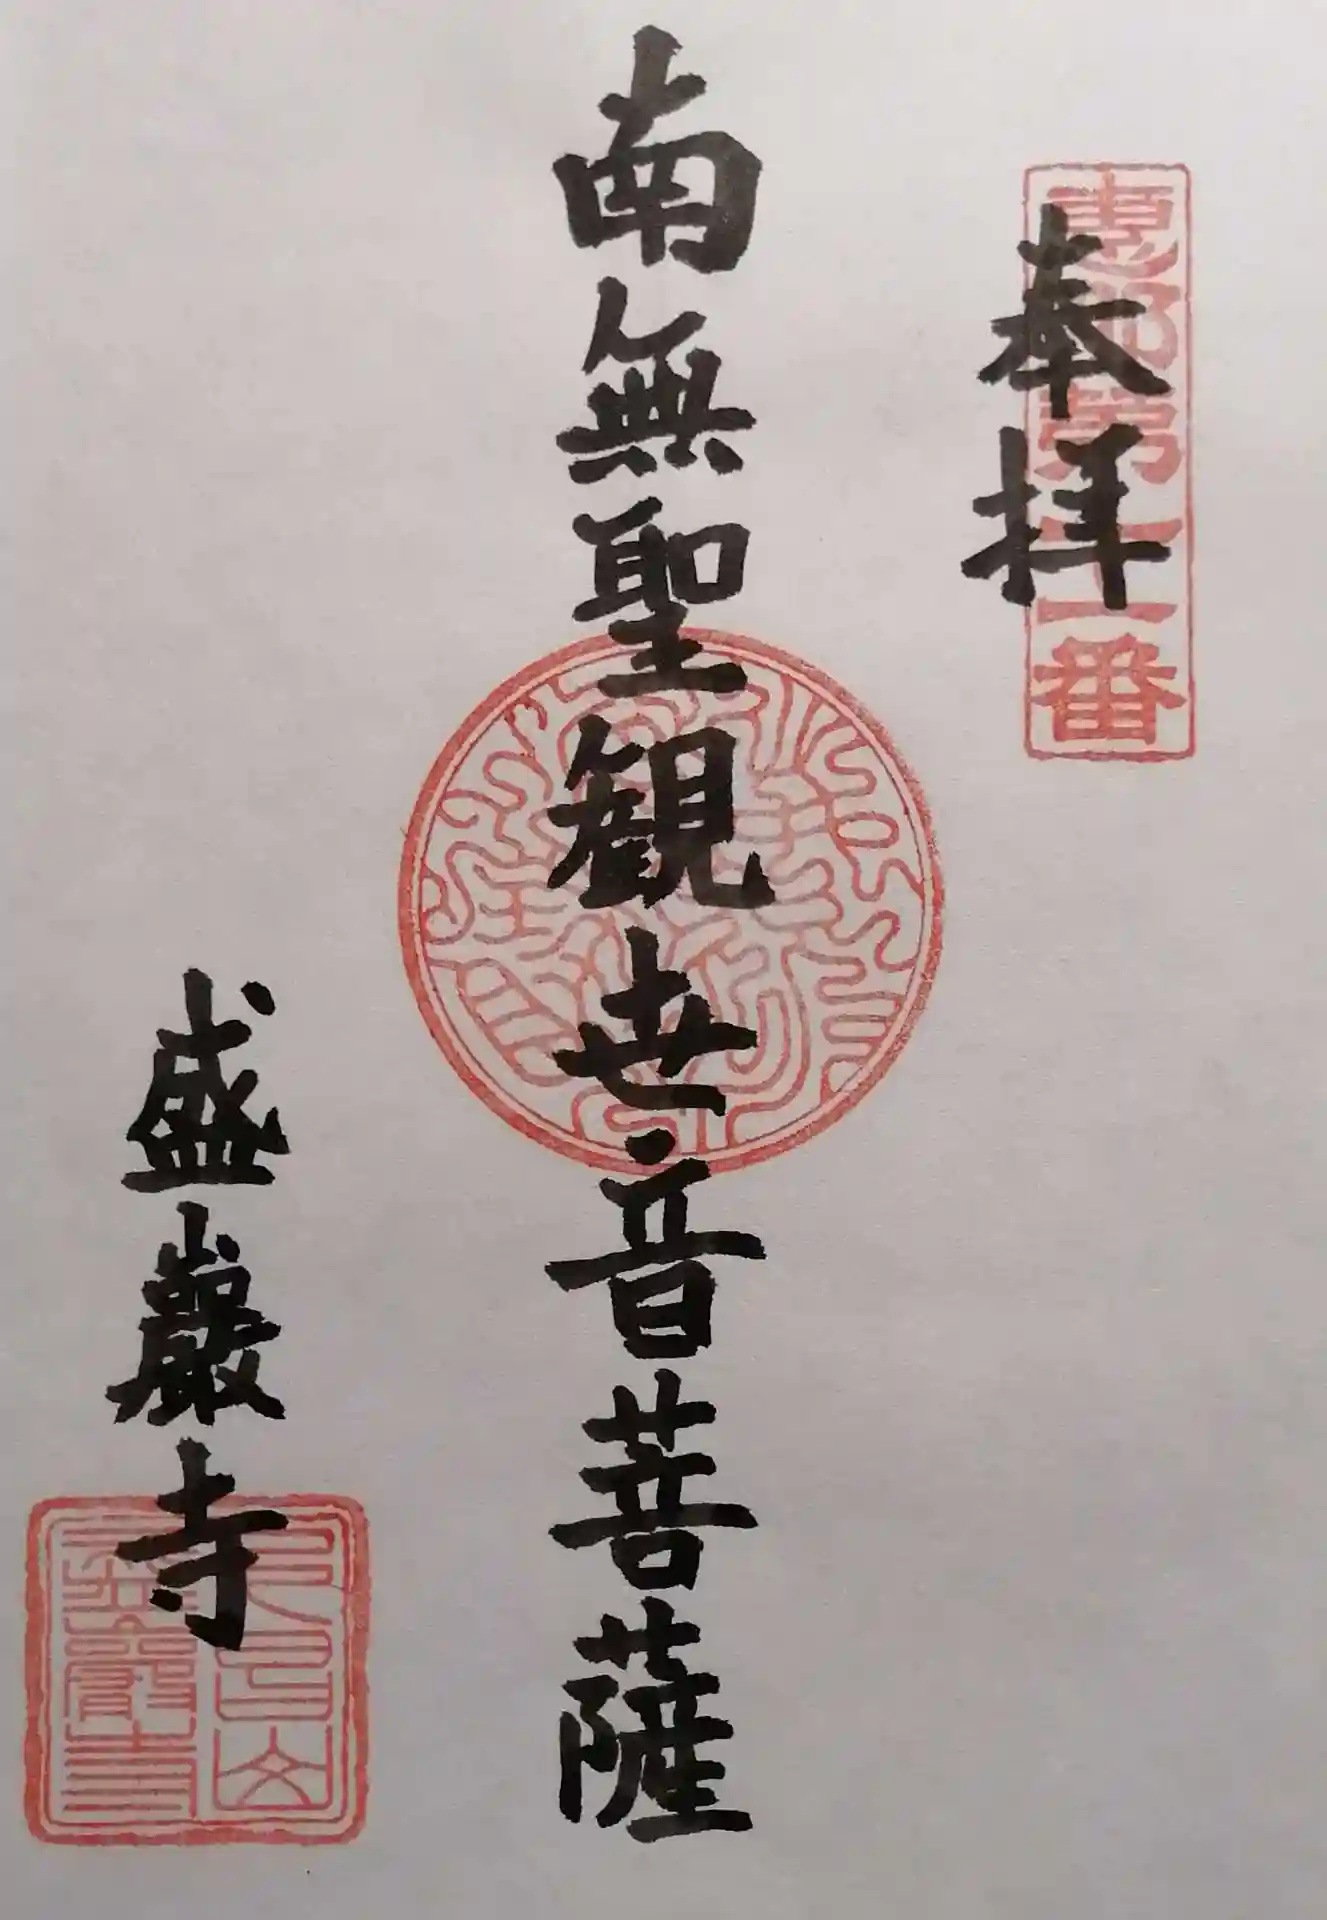 恵那第二十一番
奉拝
南無聖観世音菩薩
盛巖寺